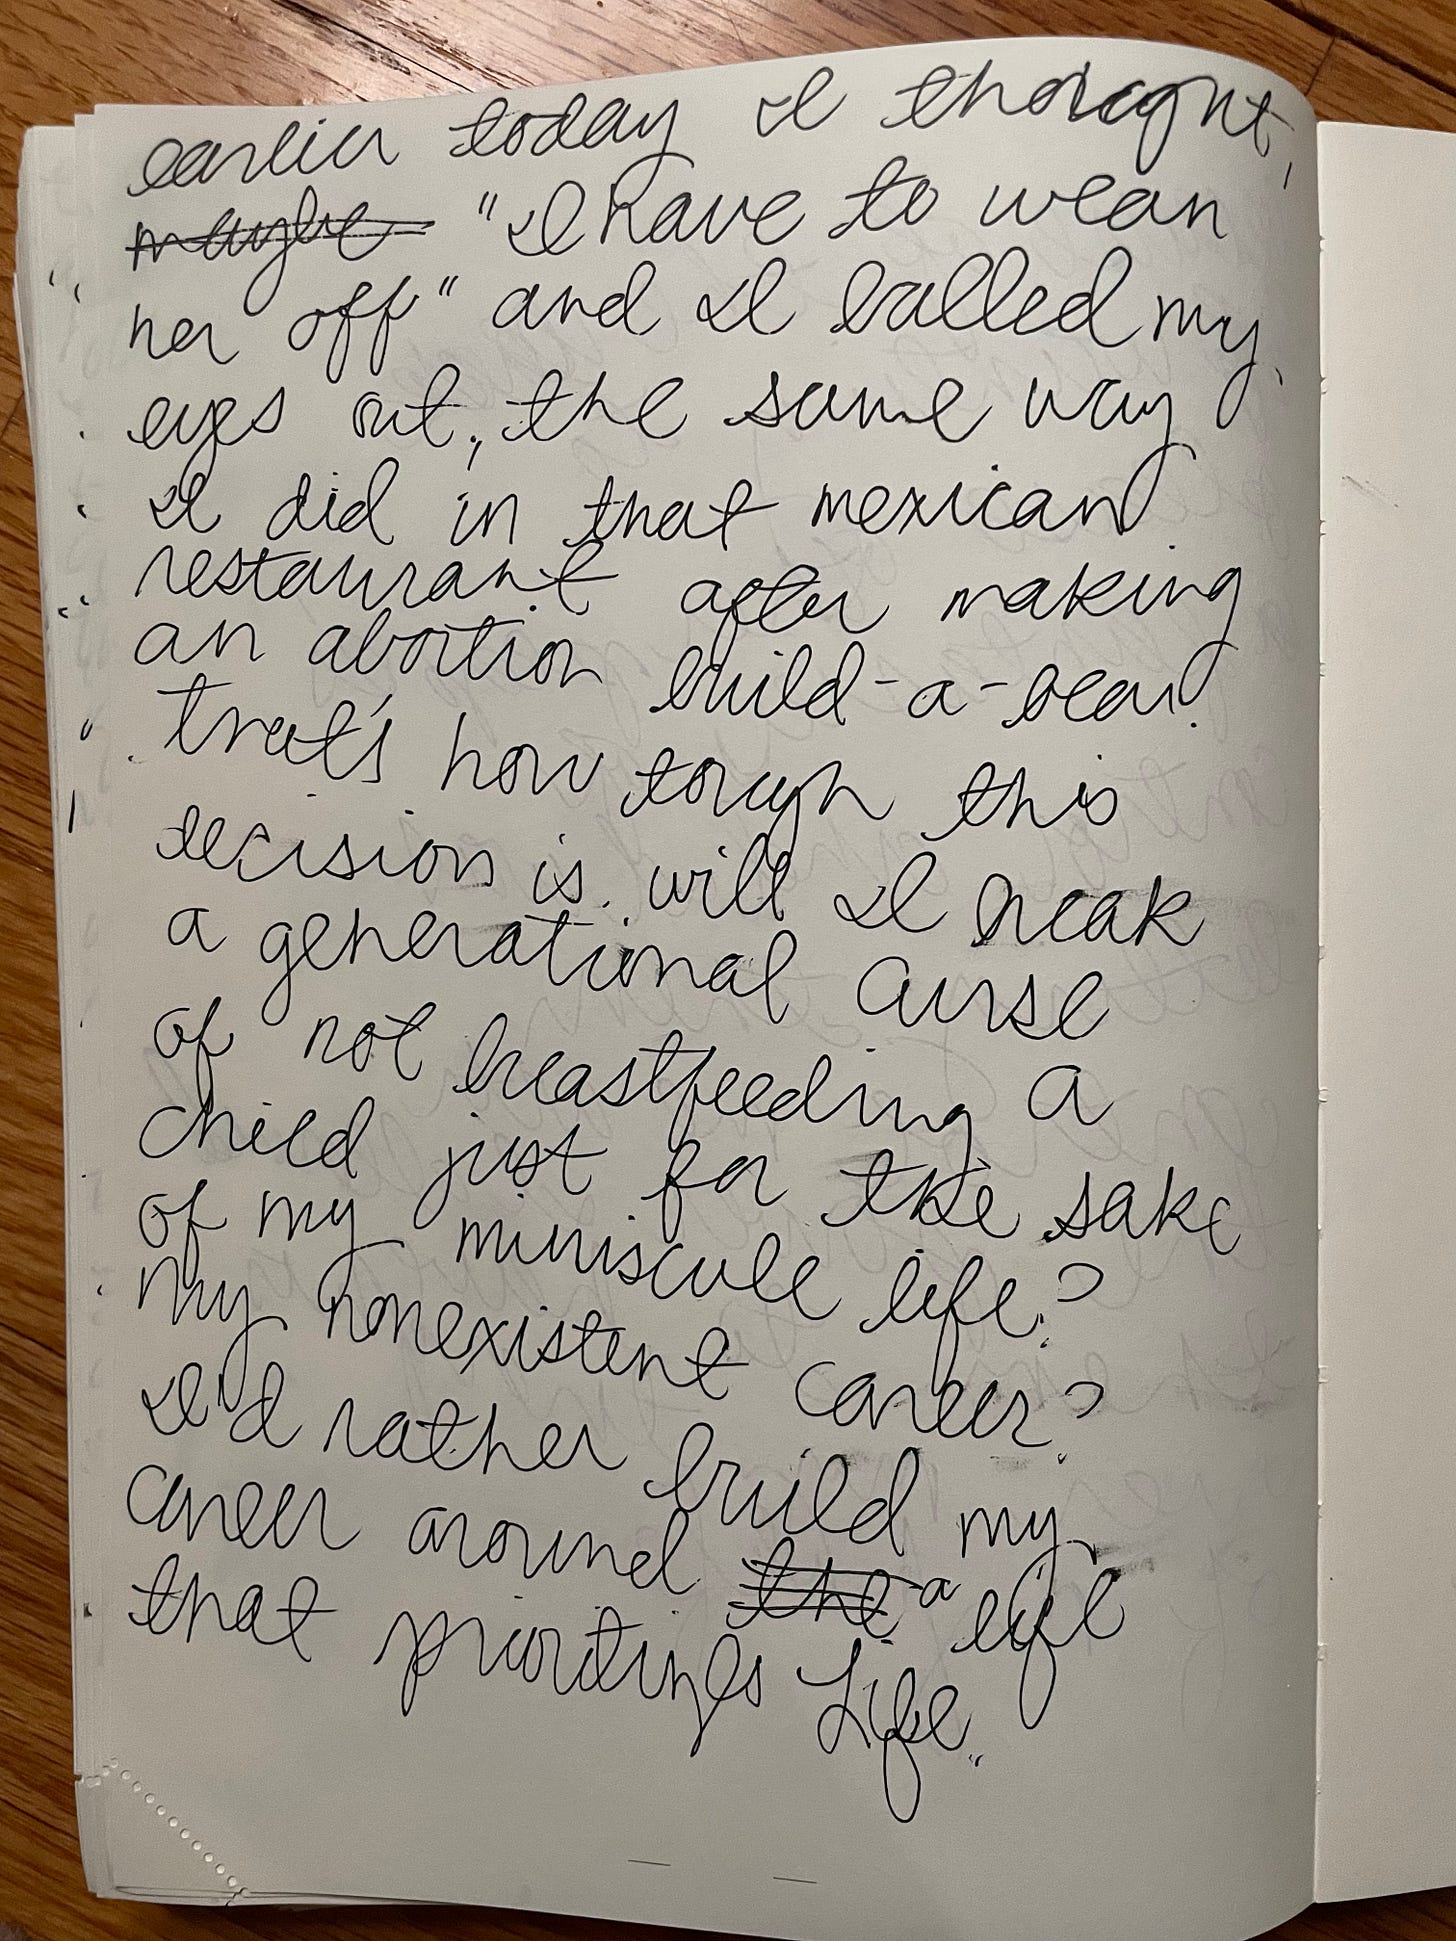 earlier today I thought,
maybe "I have to wean
her off" and I balled my
eyes out, the same way
I did in that mexican
restaurant after making
an abortion build-a-bear.
that's how tough this
decision is. will I break
a generational curse
of not breastfeeding a
child just for the sake
of my miniscule life?
my nonexistent career?
I'd rather build my
career around the a life
that prioritizes Life.